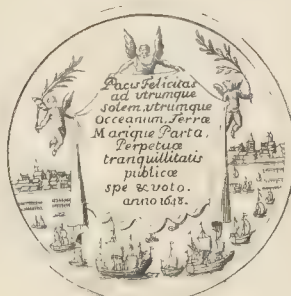 Pacis Felicitas
ad vtrumque
solem, vtrumque
Occeanum, Terræ
Marique Parta,
Perpetuæ
tranquillitatis
publicæ
spe & voto.
anno 1648.